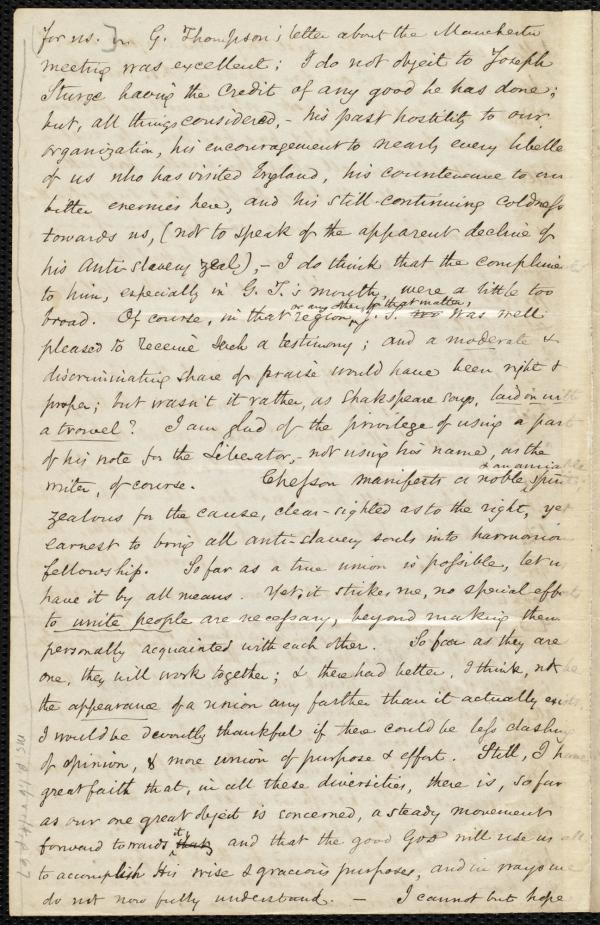 for us. G. Thompson's letter about the Manchester
meeting was excellent; I do not object to Joseph
Sturge having the credit of any good he has done;
but, all things considered, - his past hostility to our
organization, his encouragement to nearly every libeller
of us who has visited England, his countenance to our
bitter enemies here, and his still-continuing coldness
towards us, (not to speak of the apparent decline of
his Anti-Slavery zeal), - I do think that the compliments
to him, especially in G. T.'s mouth, were a little too
or any other, for that matter,
broad. Of course, in that region, J. S. was well
pleased to receive such a testimony; and a moderate &
discriminating share of praise would have been right &
proper; but wasn't it rather, as Shakspeare says, laid on with
a trowel? I am glad of the privilege of using a part
of his note for the Liberator, - not using his name, as the
& an amiable
writer, of course. Chesson manifests a noble spirit,
zealous for the cause, clear-sighted as to the right, yet
earnest to bring all anti-slavery souls into harmonious
fellowship. So far as a true union is possible, let us
have it by all means. Yet, it strikes me, no special efforts
to unite people are necessary, beyond making them
personally acquainted with each other. So far as they are
one, they will work together; & there had better, I think, not be
the appearance of a union any farther than it actually exists.
I would be devoutly thankful if there could be less clashing
of opinion, & more union of purpose & effort. Still, I have
great faith that, in all these diversities, there is, so far
as our one great object is concerned, a steady movement
it
forward towards that, and that the good God will use us all
to accomplish His wise & gracious purposes, and in ways we
do not now fully understand. - I cannot but hope